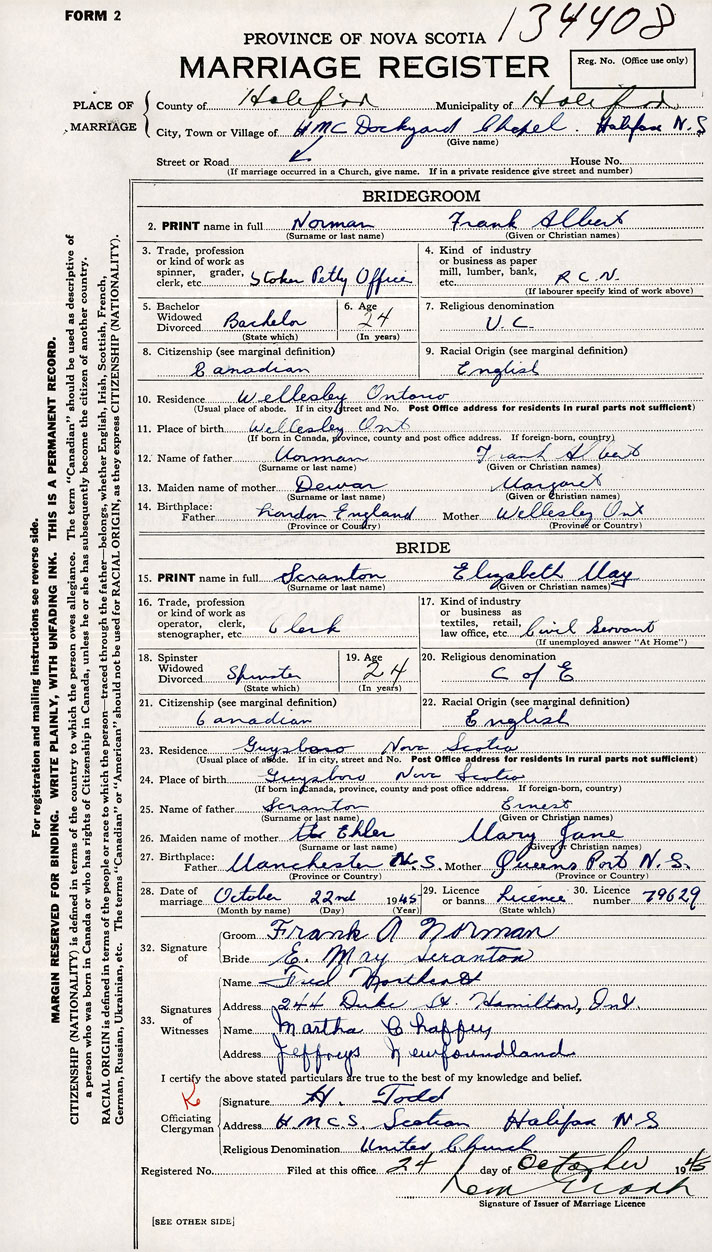 FORM 2
134408
PROVINCE OF NOVA SCOTIA
MARRIAGE REGISTER
Reg. No. (Office use only)
PLACE OF MARRIAGE
County of Halifax Municipality of Halifax
City, Town or Village of HMC Dockyard Chapel. Halifax N.S
(Give name)
Street or Road House No.
(If marriage occurred in a Church, give name. If in a private residence give street and number)
BRIDEGROOM
2. PRINT name in full Norman Frank Albert
(Surname or last name) (Given or Christian names)
3. Trade, profession or kind of work as spinner, grader, clerk, etc. Stoker Petty Office
4. Kind of industry or business as paper mill, lumber, bank, etc. R.C.N.
(If labourer specify kind of work above)
5. Bachelor Widowed Divorced Bachelor
(State which)
6. Age 24
(In years)
7. Religious denomination
U.C.
8. Citizenship (see marginal definition)
Canadian
9. Racial Origin (see marginal definition)
English
10. Residence Wellesley Ontario
(Usual place of abode. If in city, street and No. Post Office address for residents in rural parts not sufficient)
11. Place of birth Wellesley Ont
(If born in Canada, province, county and post office address. If foreign-born, country)
12. Name of father Norman Frank Albert
(Surname or last name) (Given or Christian names)
13. Maiden name of mother Dewar Margaret
(Surname or last name) (Given or Christian names)
14. Birthplace: Father London England Mother Wellesley Ont
(Province or Country) (Province or Country)
BRIDE
15. PRINT name in full Scranton Elizabeth May
(Surname or last name) (Given or Christian names)
16. Trade, profession or kind of work as operator, clerk, stenographer, etc. Clerk
17. Kind of industry or business as textiles, retail, law office, etc. Civil Servant
(If unemployed answer "At Home")
18. Spinster Widowed Divorced Spinster
(State which)
19. Age 24
(In years)
20. Religious denomination
C of E
21. Citizenship (see marginal definition)
Canadian
22. Racial Origin (see marginal definition)
English
23. Residence Guysboro Nova Scotia
(Usual place of abode. If in city, street and No. Post Office address for residents in rural parts not sufficient)
24. Place of birth Guysboro Nova Scotia
(If born in Canada, province, county and post office address. If foreign-born, country)
25. Name of father Scranton Ernest
(Surname or last name) (Given or Christian names)
26. Maiden name of mother Ehler Mary Jane
(Surname or last name) (Given or Christian names)
27. Birthplace: Father Manchester N.S. Mother Queens Port N.S.
(Province or Country) (Province or Country)
28. Date of marriage October 22nd 1945
(Month by name) (Day) (Year)
29. Licence or banns Licence
(State which)
30. Licence number 79629
32. Signature of
Groom Frank A Norman
Bride E. May Scranton
33. Signatures of Witnesses
Name Fred
Address 244 Duke St. Hamilton, Ont.
Name Martha Chaffey
Address Jeffreys Newfoundland
I certify the above stated particulars are true to the best of my knowledge and belief.
Officiating Clergyman
Signature H. Todd
Address H.M.C.S. Scotian Halifax N S
Religious Denomination United Church
Registered No. Filed at this office 24 day of October 1945
Signature of Issuer of Marriage Licence
[SEE OTHER SIDE]
For registration and mailing instructions see reverse side.
MARGIN RESERVED FOR BINDING. WRITE PLAINLY, WITH UNFADING INK. THIS IS A PERMANENT RECORD.
CITIZENSHIP (NATIONALITY) is defined in terms of the country to which the person owes allegiance. The term "Canadian" should be used as descriptive of
a person who was born in Canada or who has rights of Citizenship in Canada, unless he or she has subsequently become the citizen of another country.
RACIAL ORIGIN is defined in terms of the people or race to which the person—traced through the father—belongs, whether English, Irish, Scottish, French,
German, Russian, Ukrainian, etc. The terms "Canadian" or "American" should not be used for RACIAL ORIGIN, as they express CITIZENSHIP (NATIONALITY).